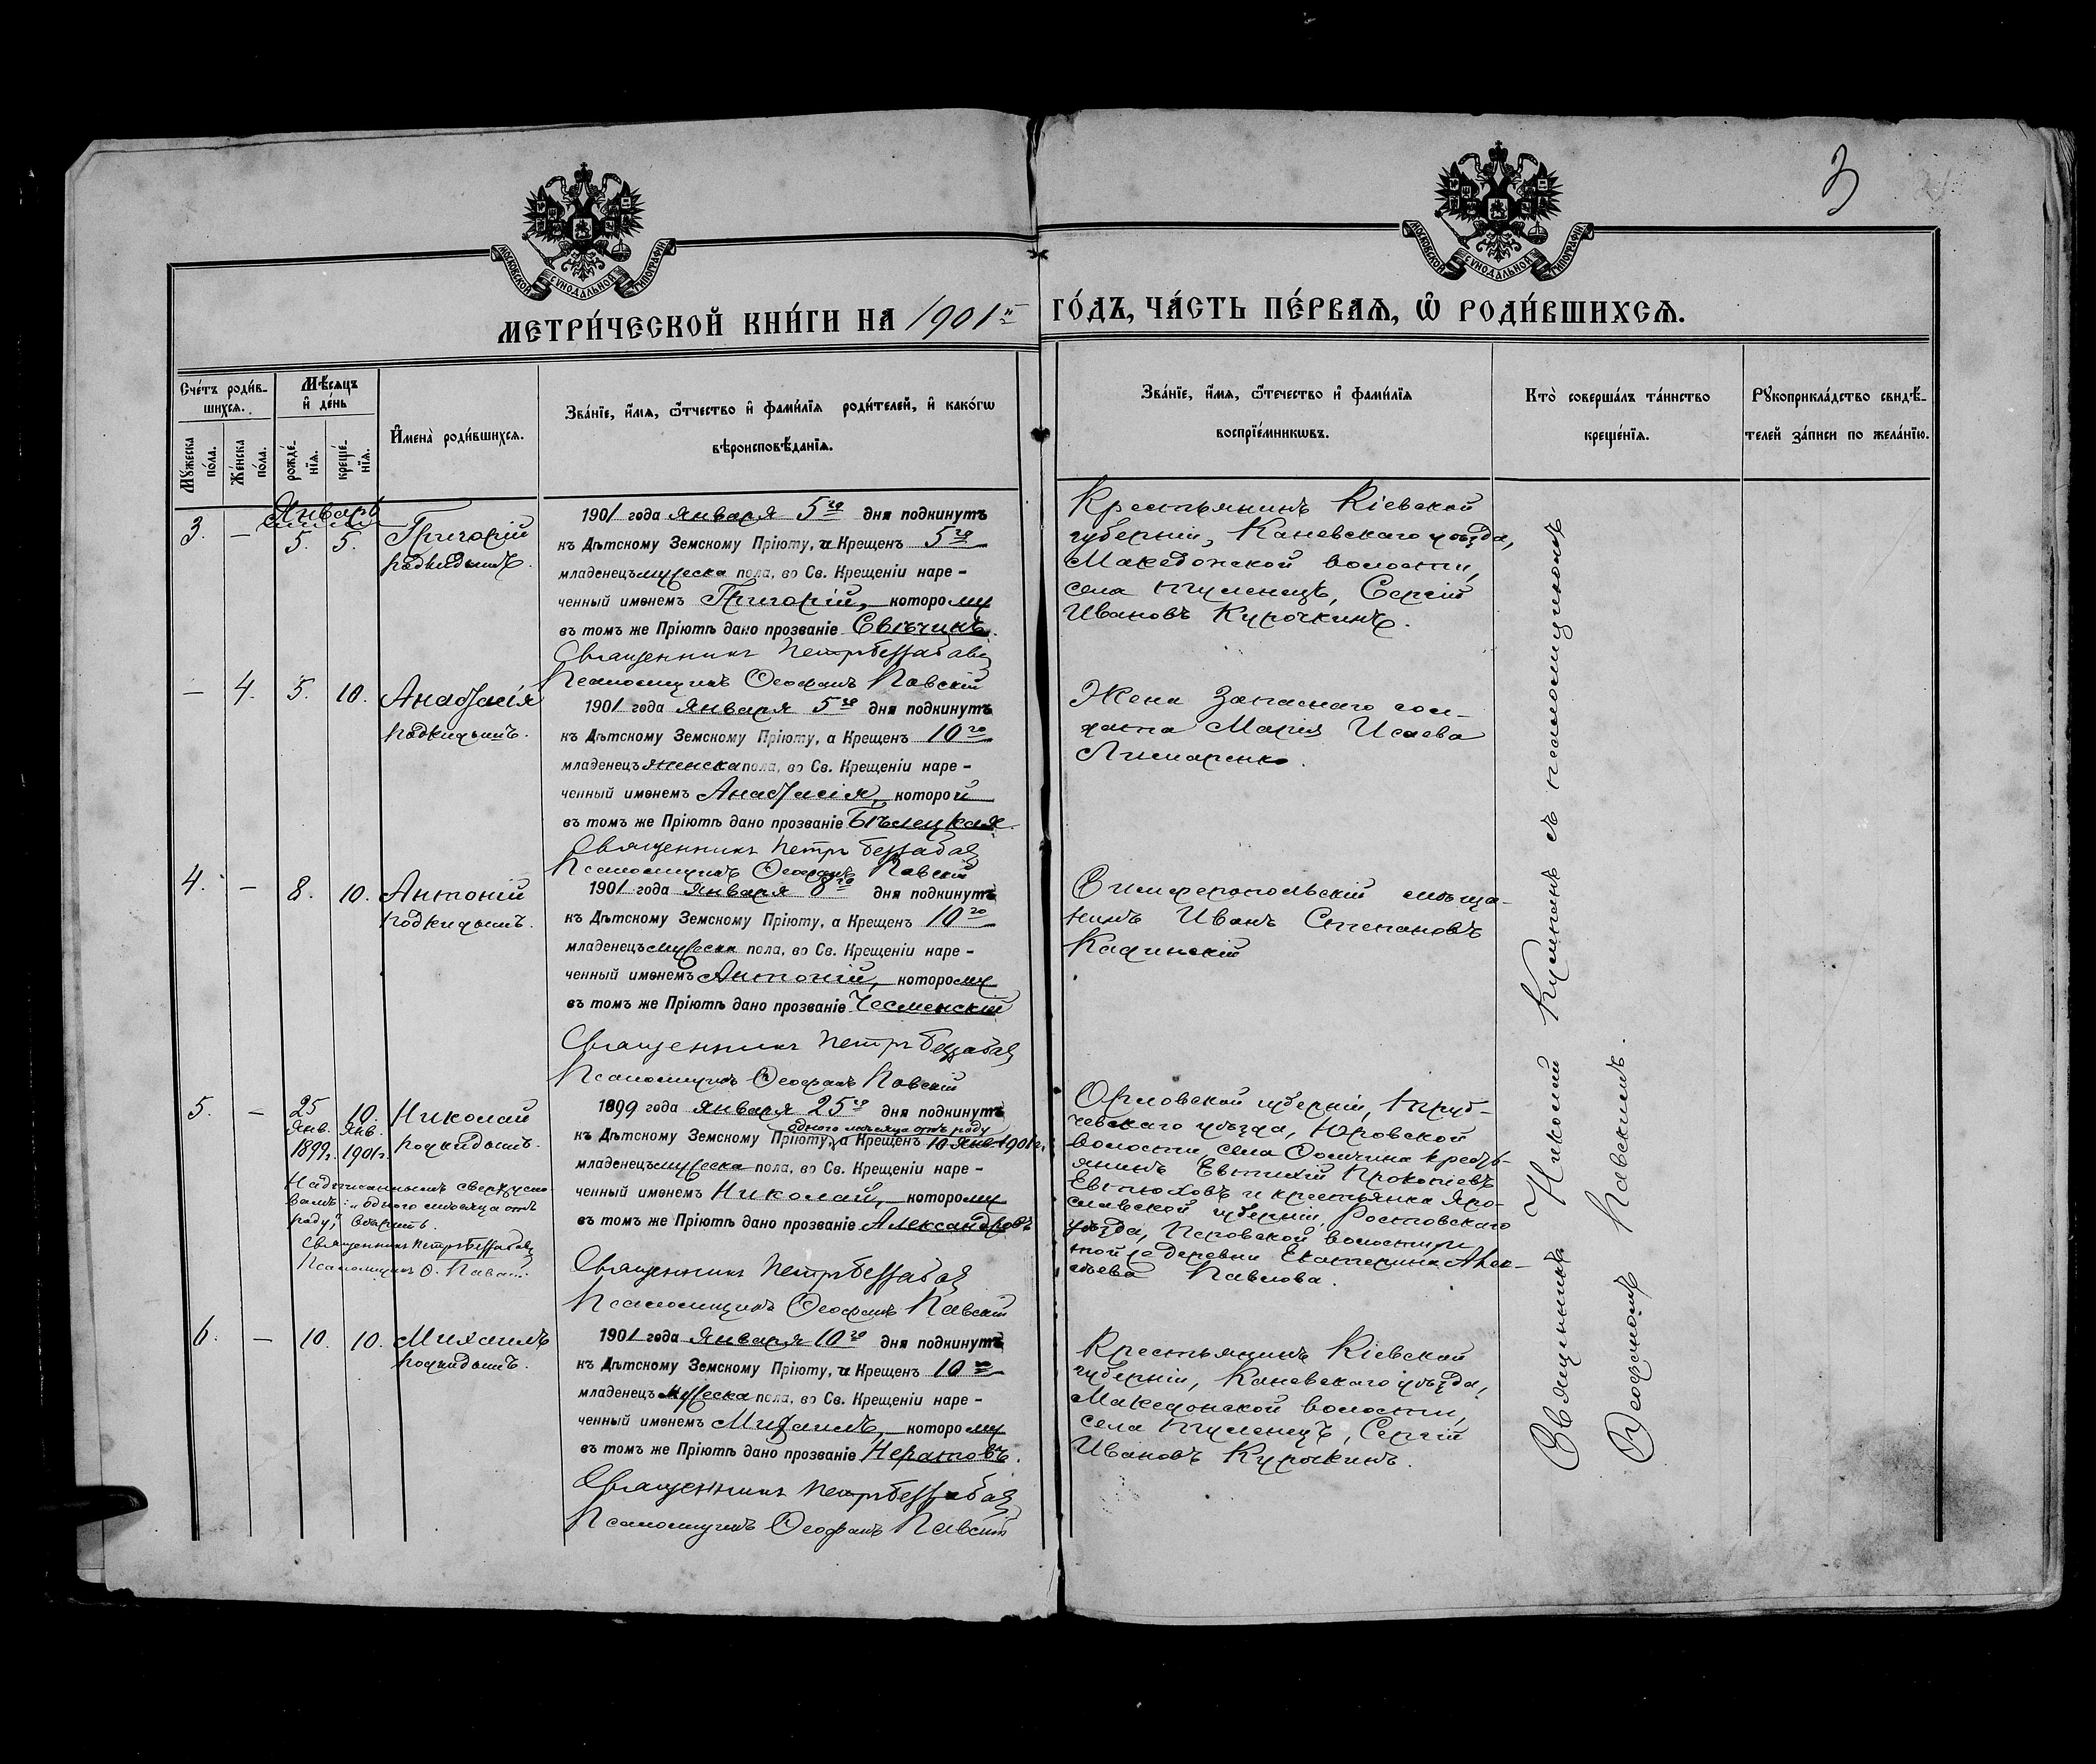 3
МОСКОВСКОЙ СѴНОДАЛЬНОЙ ТИПОГРАФІИ
МОСКОВСКОЙ СѴНОДАЛЬНОЙ ТИПОГРАФІИ
МЕТРИ́ЧЕСКОЙ КНИ́ГИ НА 1901й ГО́ДЪ, ЧА́СТЬ ПЕ́РВАѦ, Ѿ РОДИ́ВШИХСѦ.
Сче́тъ роди́в-
шихсѧ.
Мѣ́сѧцъ
и҆ де́нь
Мꙋ́жеска
по́ла.
Же́нска
по́ла.
рожде́-
нїѧ.
креще́-
нїѧ.
И҆мена̀ роди́вшихсѧ.
Зва́нїе, и҆́мѧ, ѻ҆́тчество и҆ фами́лїѧ роди́телей, и҆ како́гѡ
вѣроисповѣ́данїѧ.
Зва́нїе, и҆́мѧ, ѻ҆те́чество и҆ фами́лїѧ
воспрїе́мникѡвъ.
Кто̀ соверша́лъ та́инство
креще́нїѧ.
Рꙋкоприкла́дство свидѣ́-
телей за́писи по жела́нїю.
Январь
3. — 5. 5. Григорій
подкидышъ.
1901 года Января 5го дня подкинутъ
къ Дѣтскому Земскому Пріюту, и Крещенъ 5го
младенецъ мужеска пола, во Св. Крещеніи наре-
ченный именемъ Григорій, которому
въ томъ же Пріютѣ дано прозваніе Свѣчинъ.
Священникъ Петръ
Псаломщикъ Ѳеофанъ Павскій
Крестьянинъ Кіевской
губерніи, Каневскаго уѣзда,
Македонской волости,
села Тулинецъ, Сергій
Ивановъ Курочкинъ.
— 4. 5. 10. Анастасія
подкидышъ.
1901 года Января 5го дня подкинутъ
къ Дѣтскому Земскому Пріюту, а Крещенъ 10го
младенецъ женска пола, во Св. Крещеніи наре-
ченный именемъ Анастасія, которой
въ томъ же Пріютѣ дано прозваніе Бѣлецкая.
Священникъ Петръ
Псаломщикъ Ѳеофанъ Павскій
Жена запаснаго сол-
дата Марія Исаева
Лимаренко.
4. — 8. 10. Антоній
подкидышъ.
1901 года Января 8го дня подкинутъ
къ Дѣтскому Земскому Пріюту, а Крещенъ 10го
младенецъ мужеска пола, во Св. Крещеніи наре-
ченный именемъ Антоній, которому
въ томъ же Пріютѣ дано прозваніе Чесменскій
Священникъ Петръ
Псаломщикъ Ѳеофанъ Павскій
Симферопольскій мѣща-
нинъ Иванъ Степановъ
Кадинскій
5. — 25 10. Николай
Янв. Янв. подкидышъ.
1899г. 1901г.
Надписаннымъ сверху сло-
вамъ: „одного мѣсяца отъ
роду," вѣрить.
Священникъ Петръ
Псаломщикъ Ѳ. Павскій.
1899 года Января 25го дня подкинутъ
одного мѣсяца отъ роду
къ Дѣтскому Земскому Пріюту, а Крещенъ 10 Янв 1901г.
младенецъ мужеска пола, во Св. Крещеніи наре-
ченный именемъ Николай, которому
въ томъ же Пріютѣ дано прозваніе Александровъ
Священникъ Петръ
Псаломщикъ Ѳеофанъ Павскій
Орловской губерніи, Труб-
чевскаго уѣзда, Юровской
волости, села кресть-
янинъ Евтихій Прокопіевъ
Евтюховъ и крестьянка Яро-
славской губерніи, Ростовскаго
уѣзда, волости,
той же деревни Екатерина Алек-
сѣева Павлова.
6. — 10. 10. Михаилъ
подкидышъ.
1901 года Января 10го дня подкинутъ
къ Дѣтскому Земскому Пріюту, и Крещенъ 10го
младенецъ мужеска пола, во Св. Крещеніи наре-
ченный именемъ Михаилъ, которому
въ томъ же Пріютѣ дано прозваніе Нератовъ.
Священникъ Петръ
Псаломщикъ Ѳеофанъ Павскій
Крестьянинъ Кіевской
губерніи, Каневскаго уѣзда,
Македонской волости,
села Тулинецъ, Сергій
Ивановъ Курочкинъ.
Священникъ Николай съ псаломщикомъ
Ѳеофаномъ Павскимъ.